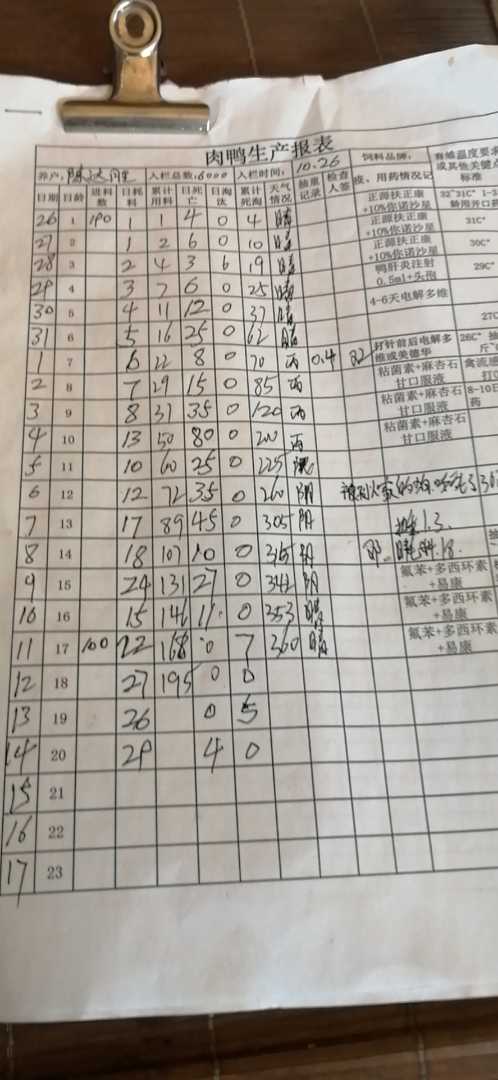 肉鸭生产报表
养户: 入栏总数:6000 入栏时间: 10.26 饲料品牌:
日期 日龄 进料数 日耗料 累计用料 日死亡 日淘汰 累计死淘 天气情况 抽重记录 检查人签 疫、用药情况记 育雏温度要求或其他关键点标准
26 1 190 1 1 4 0 4 晴 正源扶正康+10%你诺沙星 32~31C°
27 2 1 2 6 0 10 晴 正源扶正康+10%你诺沙星 31C°
28 3 2 4 3 6 19 晴 正源扶正康+10%你诺沙星 30C°
29 4 3 7 6 0 25 晴 鸭肝炎注射0.5ml+头孢 29C°
30 5 4 11 12 0 37 晴 4-6天电解多维
31 6 5 16 25 0 62 晴 27C
1 7 6 22 8 0 70 丙 0.4 打针前后电解多维或美德华 26C°
2 8 7 29 15 0 85 丙 粘菌素+麻杏石甘口服液 禽流感
3 9 8 37 35 0 120 丙 粘菌素+麻杏石甘口服液 8-10日
4 10 13 50 80 0 200 丙 粘菌素+麻杏石甘口服液
5 11 10 60 25 0 225 阴
6 12 12 72 35 0 260 阴
7 13 17 89 45 0 305 阴 1.3.
8 14 18 107 10 0 315 阴
9 15 24 131 27 0 342 阴 氟苯+多西环素+易康
10 16 15 146 11 0 353 晴 氟苯+多西环素+易康
11 17 100 22 168 0 7 360 晴 氟苯+多西环素+易康
12 18 27 195 0 0
13 19 26 0 5
14 20 29 4 0
15 21
16 22
17 23